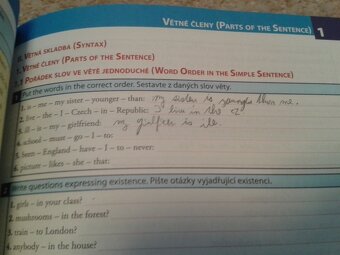 VĚTNÉ ČLENY (PARTS OF THE SENTENCE) 1
II. VĚTNÁ SKLADBA (SYNTAX)
1. VĚTNÉ ČLENY (PARTS OF THE SENTENCE)
1.1 POŘÁDEK SLOV VE VĚTĚ JEDNODUCHÉ (WORD ORDER IN THE SIMPLE SENTENCE)
1 Put the words in the correct order. Sestavte z daných slov věty.
1. is – me – my sister – younger – than: my sister is younger than me.
2. live – the – I – Czech – in – Republic: I live in the
3. ill – is – my – girlfriend: my is ill.
4. school – must – go – I – to:
5. been – England – have – I – to – never:
6. picture – likes – she – that:
2 Write questions expressing existence. Pište otázky vyjadřující existenci.
1. girls – in your class?
2. mushrooms – in the forest?
3. train – to London?
4. anybody – in the house?